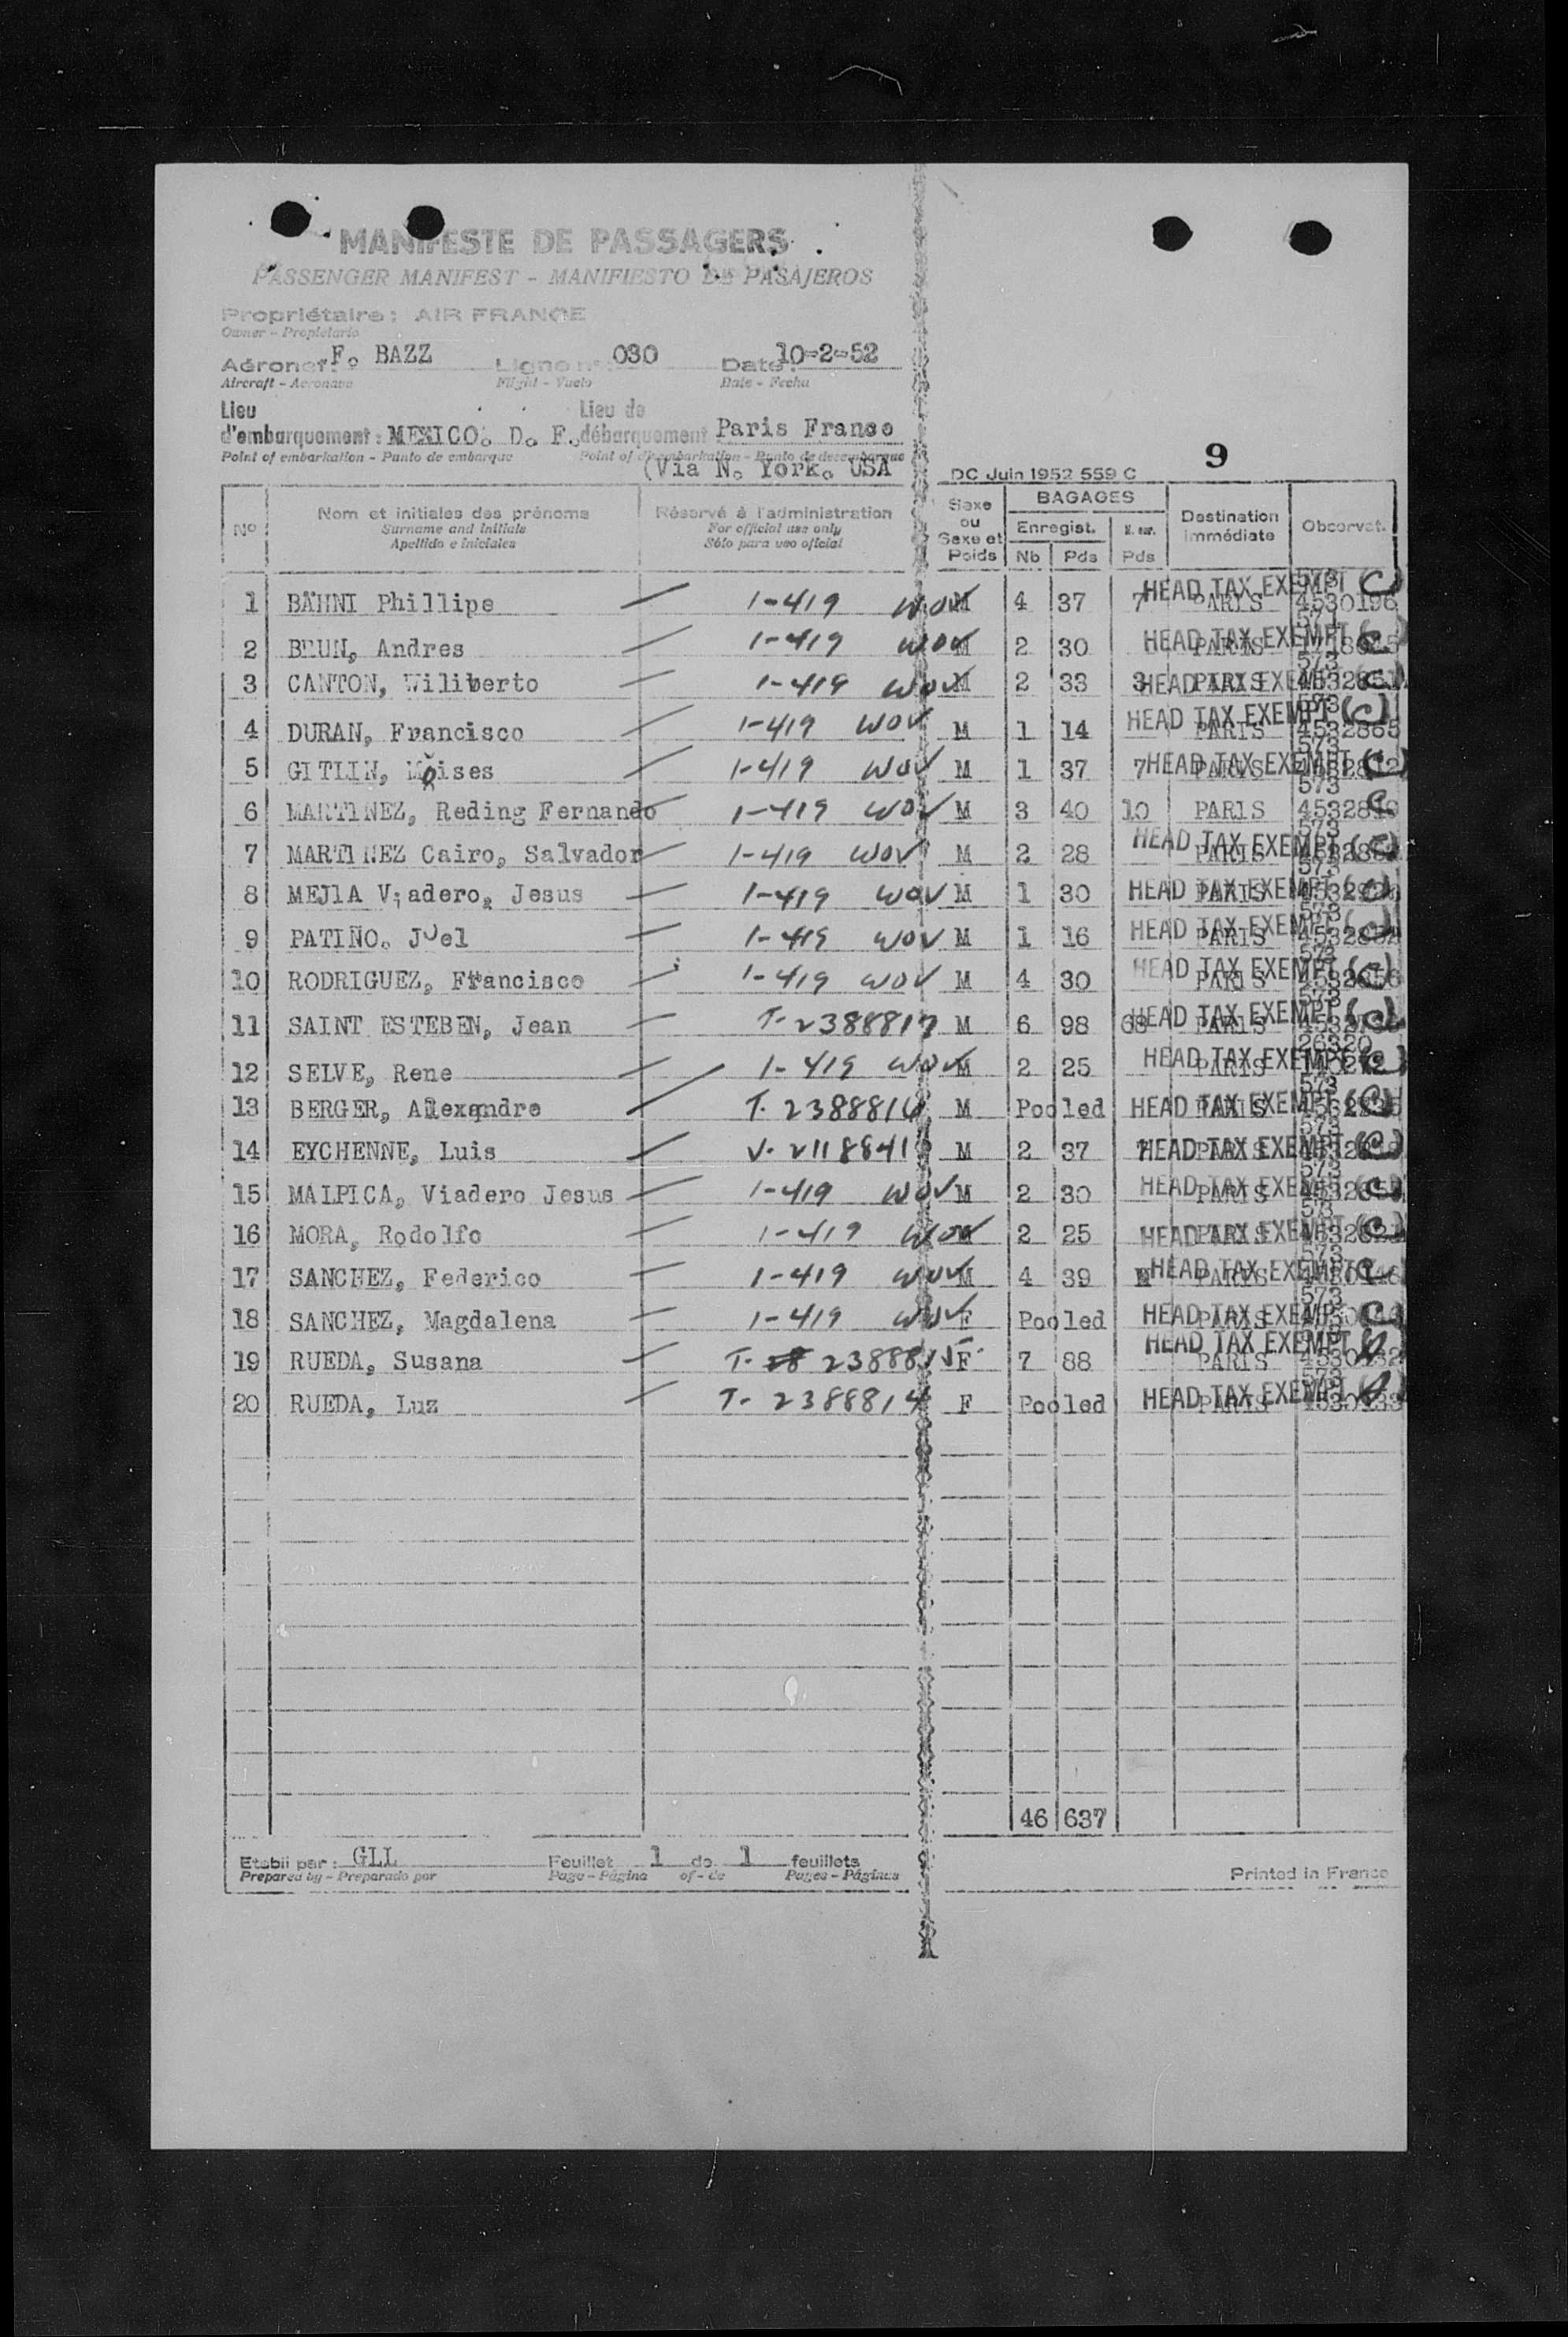 MANIFESTE DE PASSAGERS
PASSENGER MANIFEST - MANIFIESTO DE PASAJEROS
Propriétaire : AIR FRANCE
Owner - Propietario
Aéronef F. BAZZ Ligne n° 030 Date : 10-2-52
Aircraft - Aeronave Flight - Vuelo Date - Fecha
Lieu d'embarquement : MEXICO. D. F. Lieu de débarquement Paris France
Point of embarkation - Punto de embarque Point of disembarkation - Punto de desembarque
(Via N. York. USA
DC Juin 1952 559 C 9
Nº Nom et initiales des prénoms Réservé à l'administration Sexe ou Sexe et Poids BAGAGES Destination immédiate Observat.
Surname and initials For official use only Enregist.
Apellido e iniciales Sólo para uso oficial Nb Pds Pds
1 BÄHNI Phillipe 1-419 WOV M 4 37 7 PARIS HEAD TAX EXEMPT (C) 573 4530196
2 BRUN, Andres 1-419 WOV M 2 30 PARIS HEAD TAX EXEMPT (C)
3 CANTON, Wiliberto 1-419 WOV M 2 33 3 PARIS HEAD TAX EXEMPT (C) 573
4 DURAN, Francisco 1-419 WOV M 1 14 PARIS HEAD TAX EXEMPT (C) 573 4532865
5 GITLIN, Moises 1-419 WOV M 1 37 7 PARIS HEAD TAX EXEMPT (C) 573
6 MARTINEZ, Reding Fernando 1-419 WOV M 3 40 10 PARIS C 573
7 MARTINEZ Cairo, Salvador 1-419 WOV M 2 28 PARIS HEAD TAX EXEMPT (C) 573
8 MEJIA Viadero, Jesus 1-419 WOV M 1 30 PARIS HEAD TAX EXEMPT (C) 573
9 PATIÑO. Joel 1-419 WOV M 1 16 PARIS HEAD TAX EXEMPT (C) 573
10 RODRIGUEZ, Francisco 1-419 WOV M 4 30 PARIS HEAD TAX EXEMPT (C) 573
11 SAINT ESTEBEN, Jean T-2388817 M 6 98 68 PARIS HEAD TAX EXEMPT (C) 573
12 SELVE, Rene 1-419 WOV M 2 25 PARIS HEAD TAX EXEMPT (C) 26320
13 BERGER, Alexandre T. 2388816 M Pooled PARIS HEAD TAX EXEMPT (C) 573
14 EYCHENNE, Luis V. 2118841 M 2 37 7 PARIS HEAD TAX EXEMPT (C) 573
15 MALPICA, Viadero Jesus 1-419 WOV M 2 30 PARIS HEAD TAX EXEMPT (C) 573
16 MORA, Rodolfo 1-419 WOV M 2 25 PARIS HEAD TAX EXEMPT (C) 573
17 SANCHEZ, Federico 1-419 WOV M 4 39 PARIS HEAD TAX EXEMPT C 573
18 SANCHEZ, Magdalena 1-419 WOV F Pooled PARIS HEAD TAX EXEMPT C 573
19 RUEDA, Susana T. 2388815 F 7 88 PARIS HEAD TAX EXEMPT
20 RUEDA, Luz T- 2388814 F Pooled PARIS HEAD TAX EXEMPT 573
46 637
Etabli par : GLL Feuillet 1 de 1 feuillets
Prepared by - Preparado por Page - Página of - de Pages - Páginas Printed in France